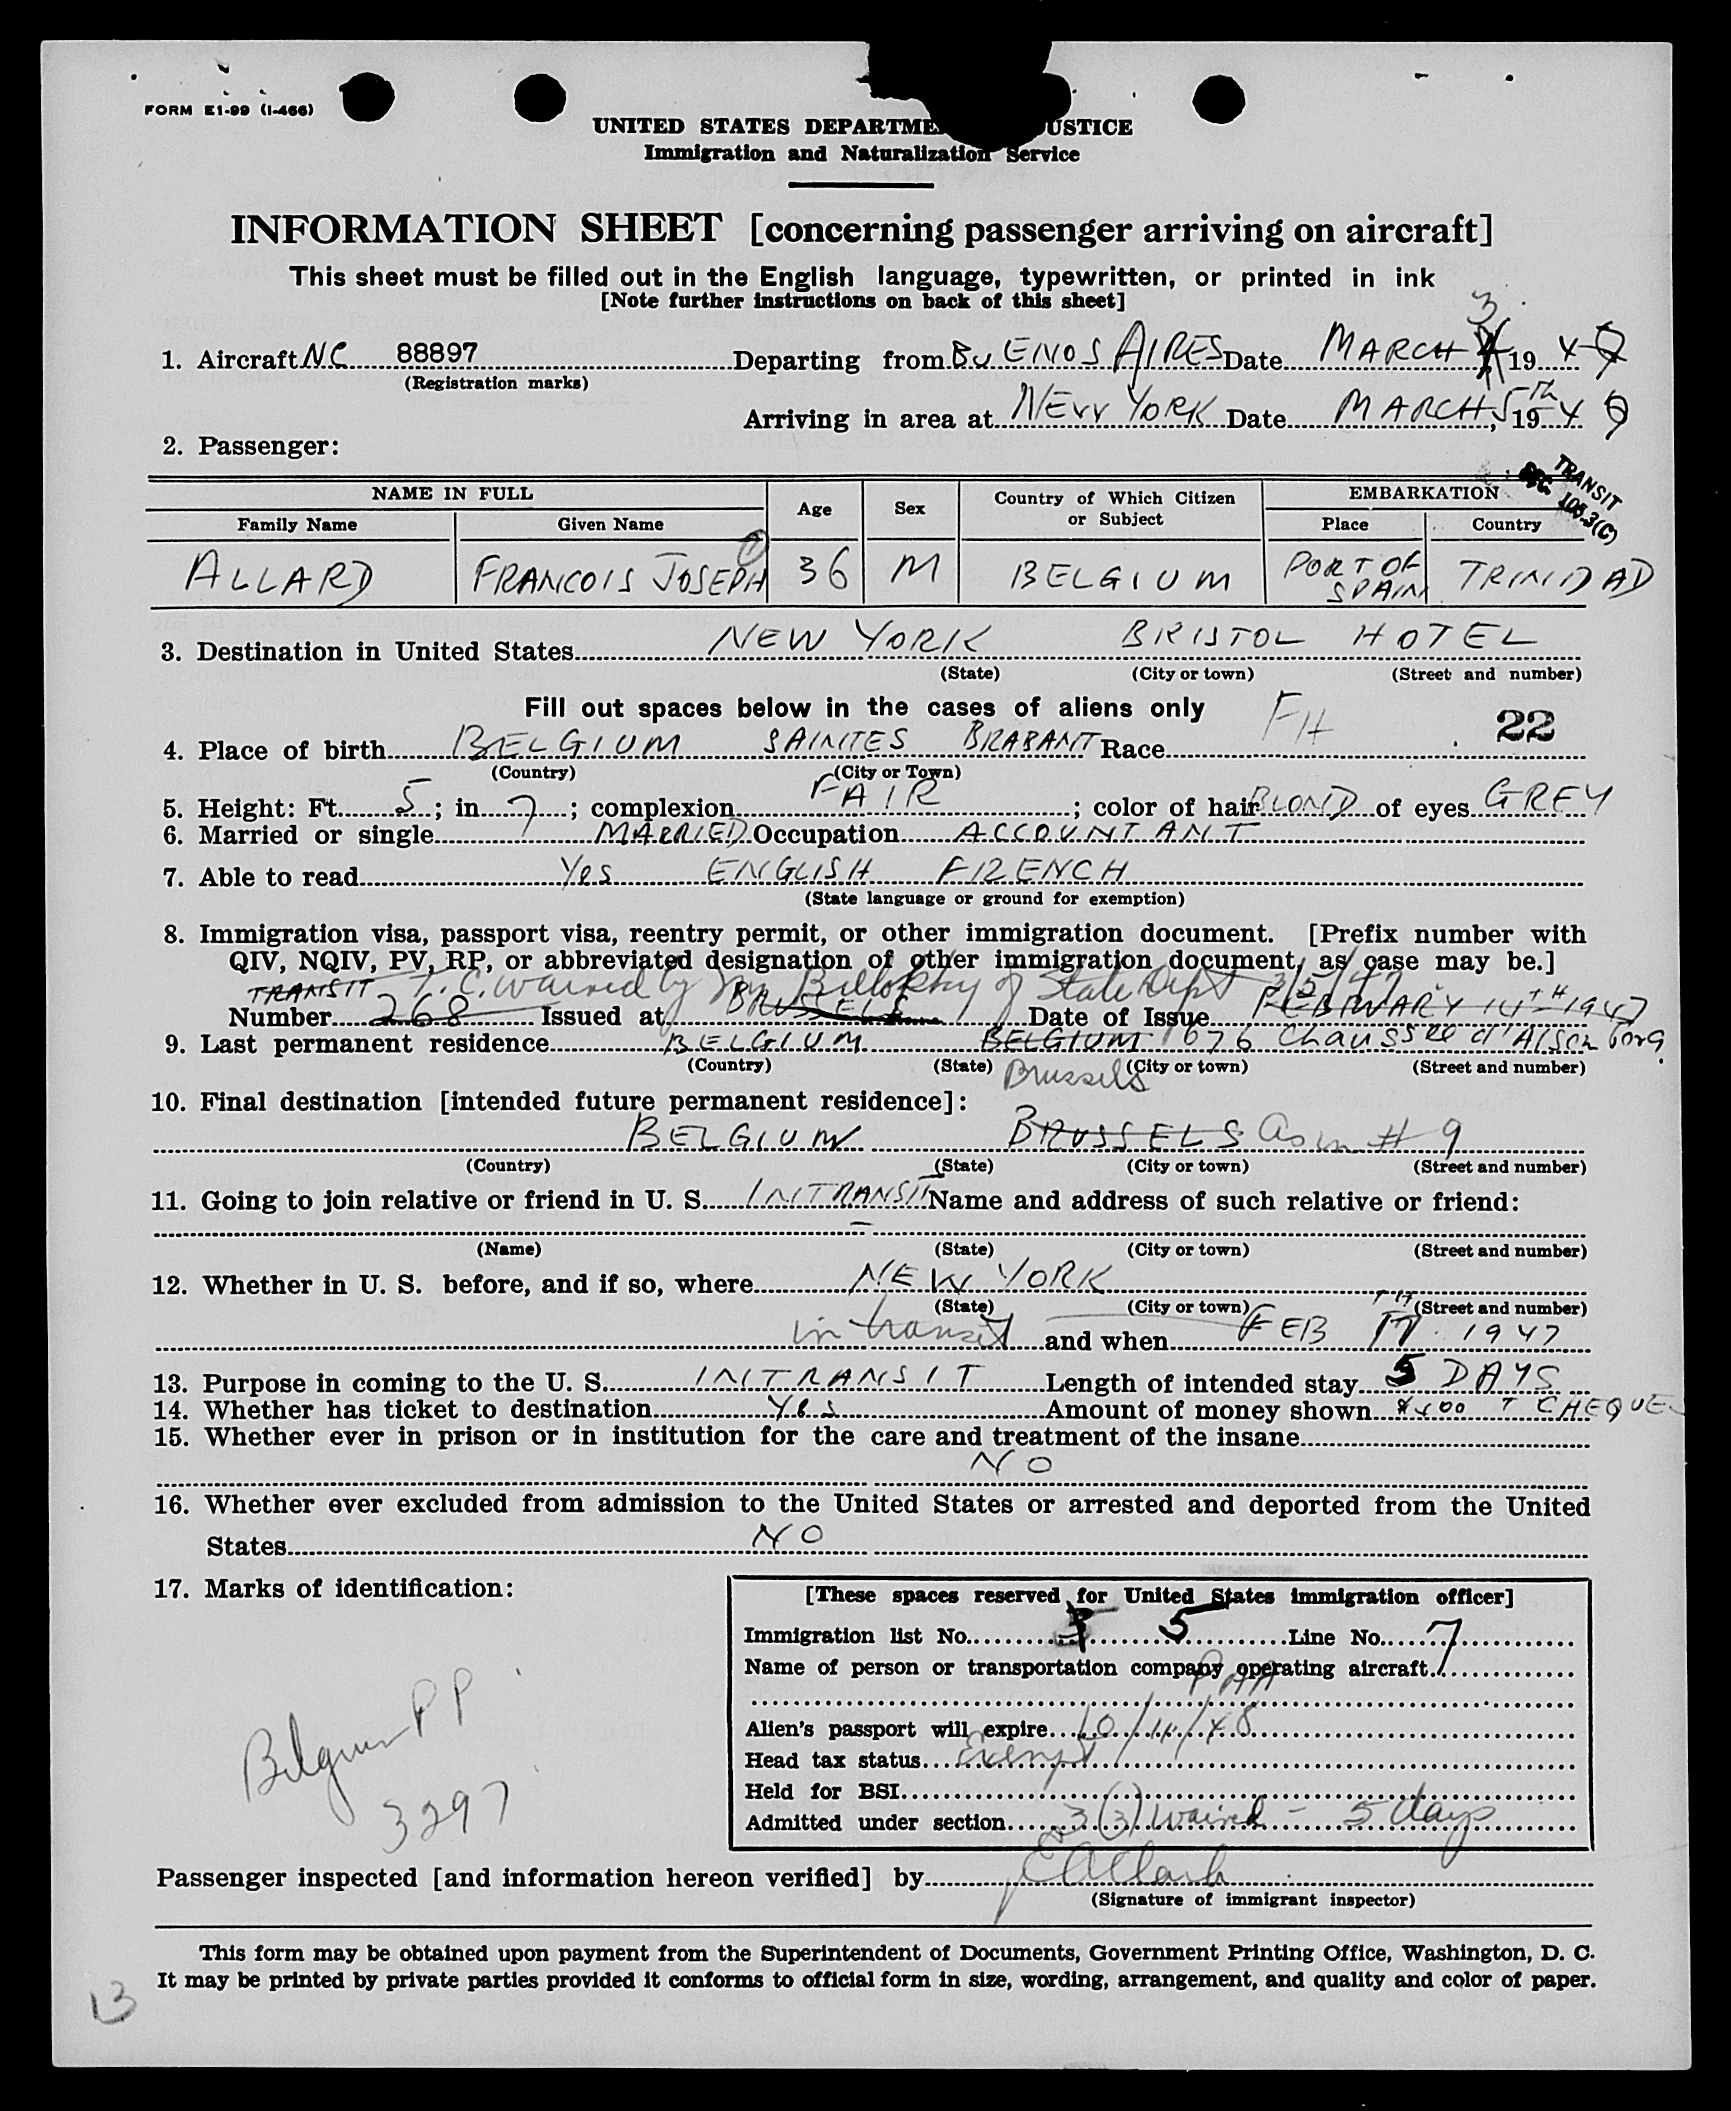 FORM E1-99 (I-466)
UNITED STATES DEPARTME USTICE
Immigration and Naturalization Service
INFORMATION SHEET [concerning passenger arriving on aircraft]
This sheet must be filled out in the English language, typewritten, or printed in ink
[Note further instructions on back of this sheet]
3
1. Aircraft NC 88897 Departing from BUENOS AIRES Date MARCH 19 4
(Registration marks)
Arriving in area at NEW YORK Date MARCH, 5th 19 4
2. Passenger:
TRANSIT
SEC. 105.3(C)
NAME IN FULL Age Sex Country of Which Citizen or Subject EMBARKATION
Family Name Given Name Place Country
ALLARD FRANCOIS JOSEPH 36 M BELGIUM PORT OF SPAIN TRINIDAD
3. Destination in United States NEW YORK BRISTOL HOTEL
(State) (City or town) (Street and number)
Fill out spaces below in the cases of aliens only FH 22
4. Place of birth BELGIUM SAINTES BRABANT Race
(Country) (City or Town)
5. Height: Ft. 5; in. 7; complexion FAIR; color of hair BLOND of eyes GREY
6. Married or single MARRIED Occupation ACCOUNTANT
7. Able to read Yes ENGLISH FRENCH
(State language or ground for exemption)
8. Immigration visa, passport visa, reentry permit, or other immigration document. [Prefix number with
QIV, NQIV, PV, RP, or abbreviated designation of other immigration document, as case may be.]
TRANSIT T.C. waived by Mr. of State Dept 3/5/47
Number 268 Issued at BRUSSELS Date of Issue FEBRUARY 14TH 1947
9. Last permanent residence BELGIUM BELGIUM 676 Chaussee d'Alsemborg
(Country) (State) Brussels (City or town) (Street and number)
10. Final destination [intended future permanent residence]:
BELGIUM BRUSSELS as in # 9
(Country) (State) (City or town) (Street and number)
11. Going to join relative or friend in U. S. INTRANSIT Name and address of such relative or friend:
(Name) (State) (City or town) (Street and number)
12. Whether in U. S. before, and if so, where NEW YORK
(State) (City or town) (Street and number)
in transit and when FEB 17TH 1947
13. Purpose in coming to the U. S. INTRANSIT Length of intended stay 5 DAYS
14. Whether has ticket to destination Yes Amount of money shown $400 T CHEQUES
15. Whether ever in prison or in institution for the care and treatment of the insane
NO
16. Whether ever excluded from admission to the United States or arrested and deported from the United
States NO
17. Marks of identification:
[These spaces reserved for United States immigration officer]
Immigration list No. 5 Line No. 7
Name of person or transportation company operating aircraft
PAA
Alien's passport will expire 10/14/48
Head tax status Exempt
Held for BSI
Admitted under section 3(3) waived - 5 days
Belgium PP
3297
Passenger inspected [and information hereon verified] by
(Signature of immigrant inspector)
This form may be obtained upon payment from the Superintendent of Documents, Government Printing Office, Washington, D. C.
It may be printed by private parties provided it conforms to official form in size, wording, arrangement, and quality and color of paper.
13